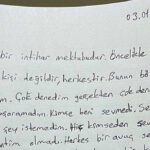 03.01
bir intihar mektubudur. Öncelikle
kişi değildir, herkestir. Bunun
m. Çok denedim gerçekten çok den
aşaramadım. Kimse beni sevmedi. Se
şey istemedim. Hiç kimseden sev
tim olmadı. Herkes bir avuç